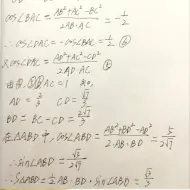 cos∠BAC = (AB²+AC²-BC²)/(2AB·AC) = -1/2
∴cos∠DAC = -cos∠BAC = 1/2 ⑥
又cos∠DAC = (AD²+AC²-CD²)/(2AD·AC)
由⑤,⑥ AC = 1
AD = 2/3 CD = √7/3
BD = BC - CD = 2√7/3
在△ABD中, cos∠ABD = (AB²+BD²-AD²)/(2·AB·BD) = 5/(2√7)
∴sin∠ABD = √3/(2√7)
∴S△ABD = 1/2·AB·BD·sin∠ABD = √3/3